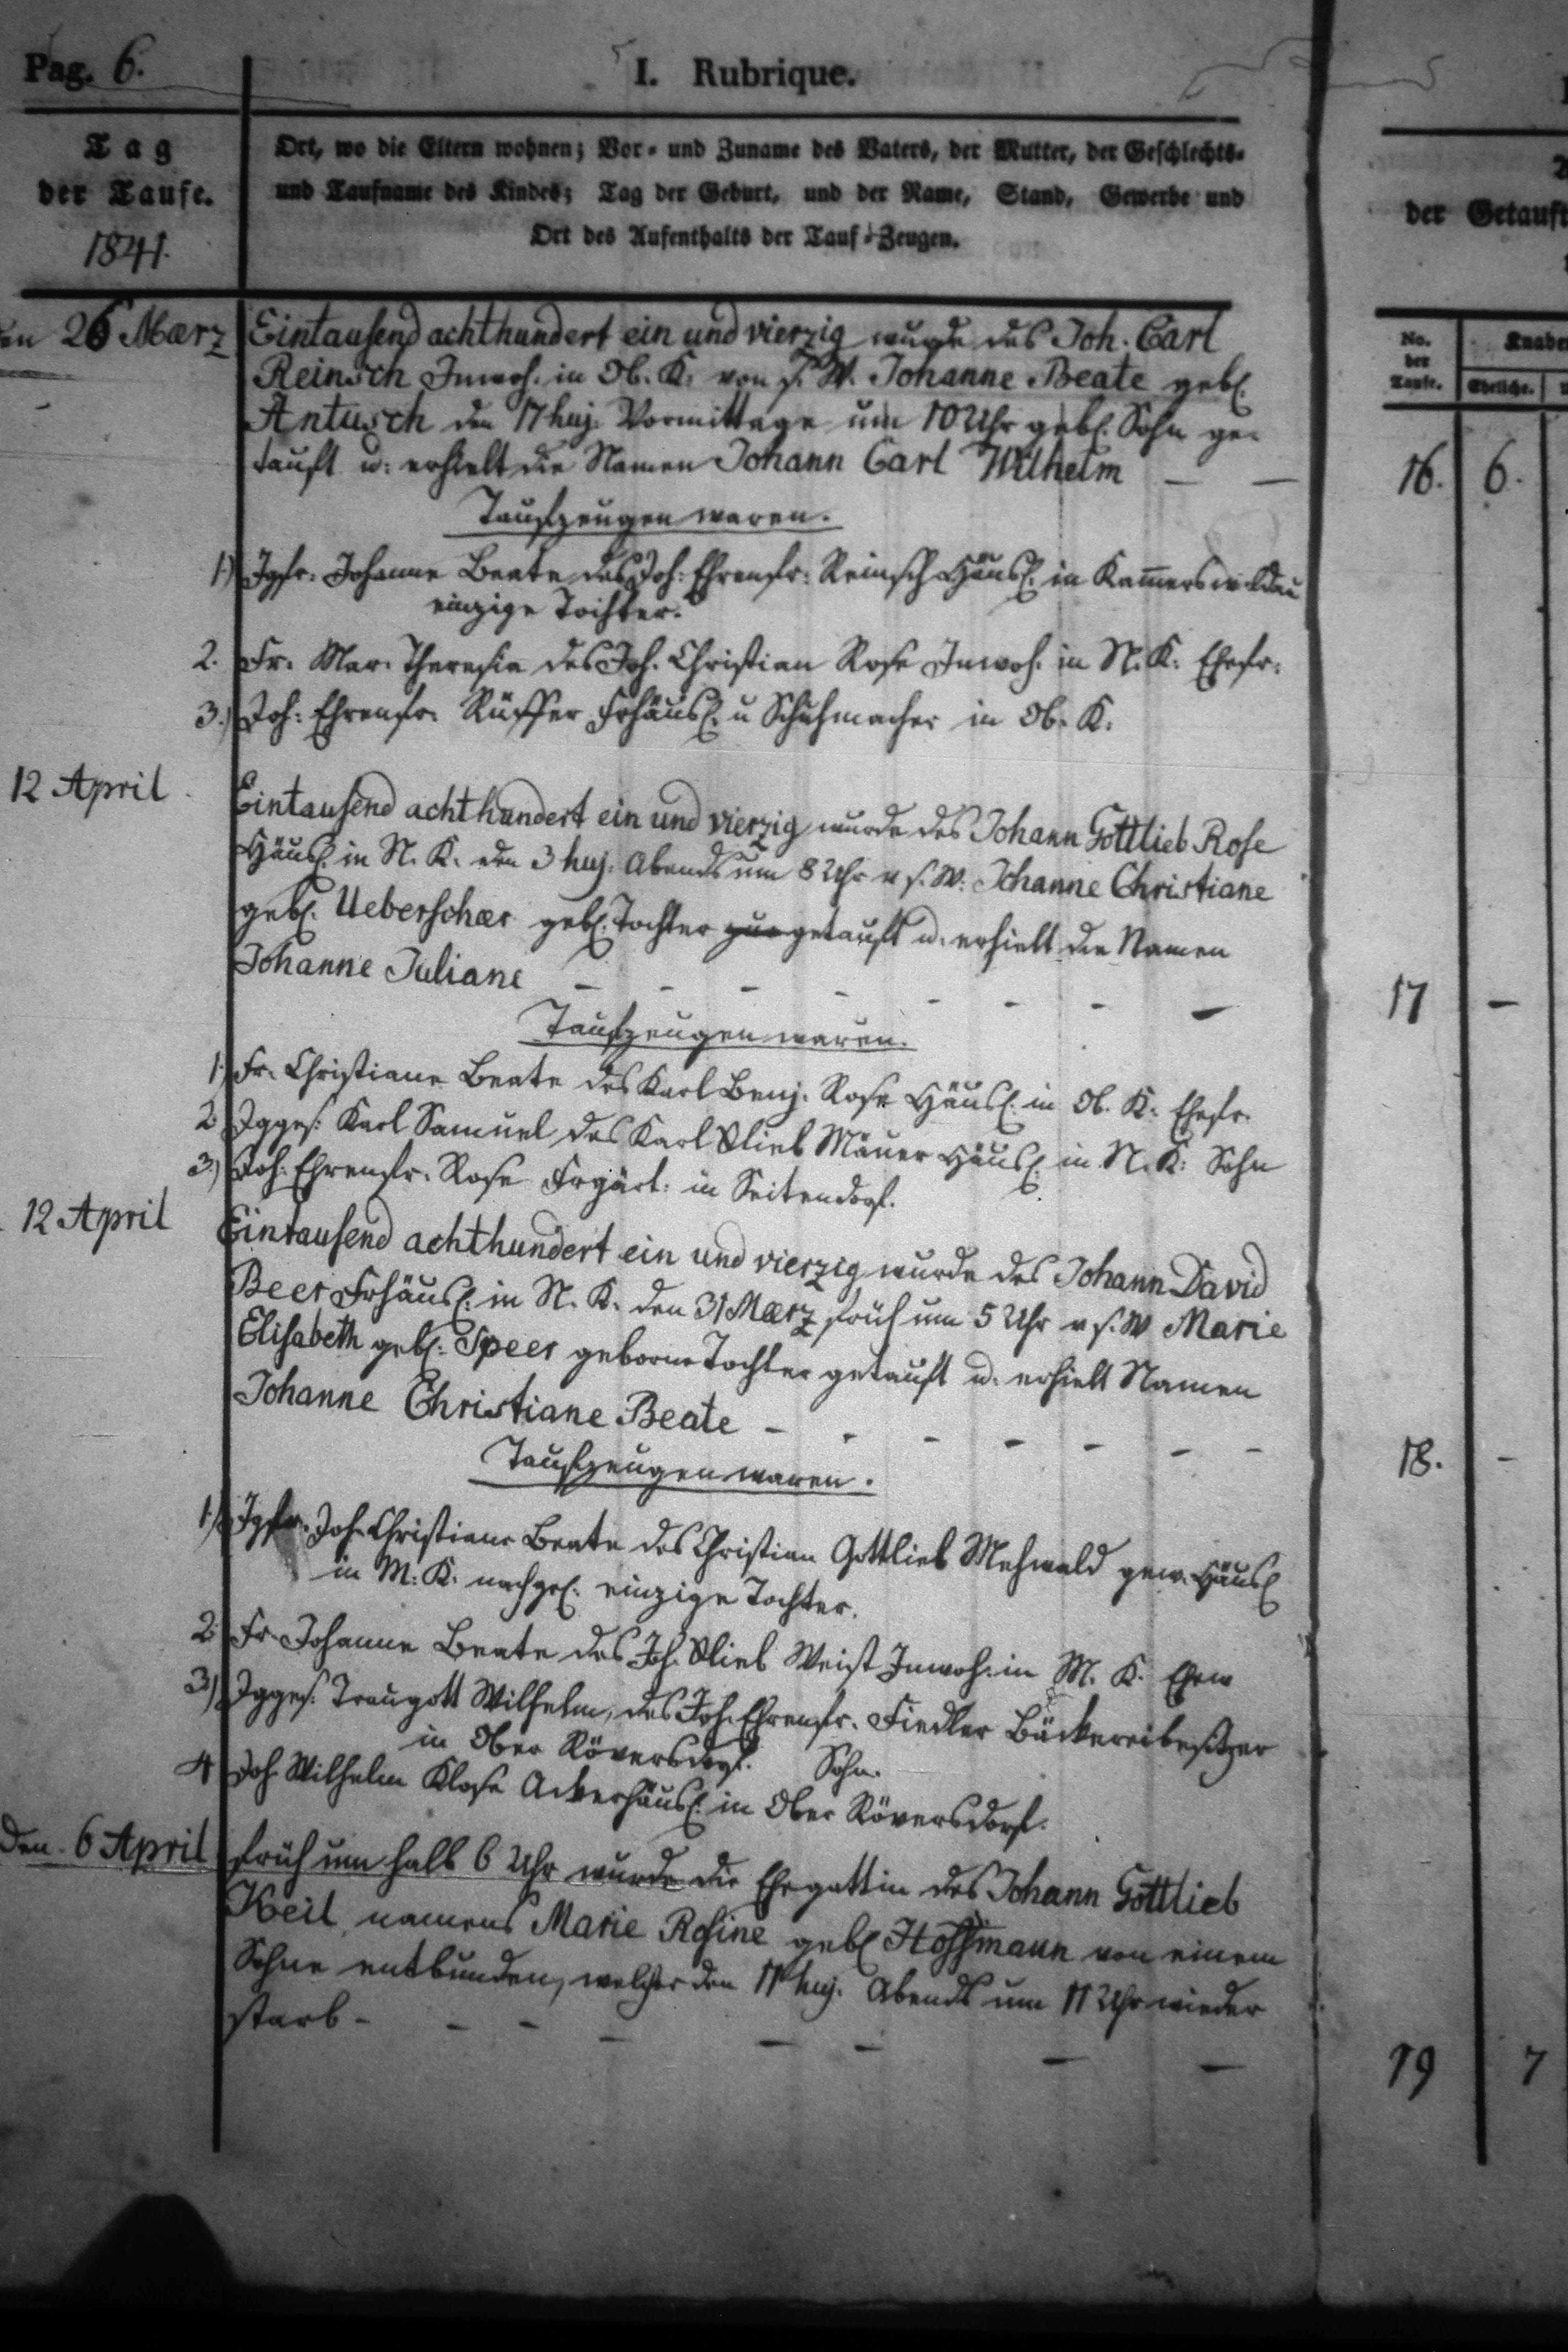 Pag. 6.
I. Rubrique.
Tag
der Taufe.
1841.
Ort, wo die Eltern wohnen; Vor- und Zuname des Vaters, der Mutter, der Geschlechts-
und Taufname des Kindes; Tag der Geburt, und der Name, Stand, Gewerbe und
Ort des Aufenthalts der Tauf-Zeugen.
der Getauft
No.
der
Taufe.
Knabe
Eheliche.
en 26 Maerz
Eintausend achthundert ein und vierzig wurde des Joh. Carl
Reinsch Inwoh. in Ob. K. von s. W. Johanne Beate geb.
Antusch den 17 huj. Vormittags um 10 Uhr geb. Sohn ge-
tauft u. erhielt die Namen Johann Carl Wilhelm — —
16. 6.
Taufzeugen waren.
1.) Jgfr. Johanne Beate des Joh: Ehrenfr: Reinsch Häusl. in Kam̄erswaldau
einzige Tochter.
2. Fr. Mar. Theresia des Joh. Christian Rose Inwoh. in N. K. Ehefr.
3.) Joh: Ehrenfr. Rüffer Frhäusl. u Schuhmacher in Ob. K.
12 April
Eintausend achthundert ein und vierzig wurde des Johann Gottlieb Rose
Häusl. in N. K. den 3 huj. Abends um 8 Uhr v s. W. Johanne Christiane
geb. Ueberschaer geb. Tochter zur getauft u. erhielt die Namen
Johanne Juliane - - - - - - - —
17 —
Taufzeugen waren.
1.) Fr. Christiane Beate des Karl Benj. Rose Häusl. in Ob. K. Ehefr.
2 Jgges: Karl Samuel des Karl Glieb Mäuer Häusl. in N. K: Sohn
3.) Joh. Ehrenfr. Rose Frgärt. in Seitendorf.
12 April
Eintausend achthundert ein und vierzig wurde des Johann David
Beer Frhäusl. in N. K. den 31 Maerz früh um 5 Uhr v s. W Marie
Elisabeth geb. Speer geborne Tochter getauft u. erhielt Namen
Johanne Christiane Beate - - - - - - -
18. -
Taufzeugen waren.
1.) Jgfr. Joh. Christiane Beate des Christian Gottlieb Mehwald gew. Häusl
in M. K. nachgel. einzige Tochter.
2. Fr. Johanne Beate des Joh. Glieb Weist Inwoh. in M. K. Ehew
3.) Jgges: Traugott Wilhelm, des Joh. Ehrenfr. Fiedler Bäckereibesitzer
in Ober Röversdorf. Sohn.
4 Joh Wilhelm Klose Ackerhäusl. in Ober Röversdorf.
den 6 April
früh um halb 6 Uhr wurde die Ehegattin des Johann Gottlieb
Keil, namens Marie Rosine geb Hoffmann von einem
Sohne entbunden, welcher den 11 huj. Abends um 11 Uhr wieder
starb - - - — — - — —
19 7